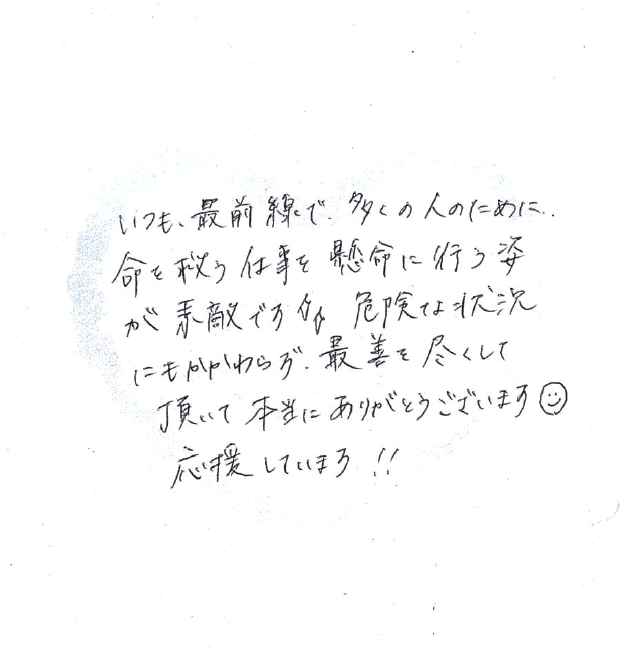 いつも、最前線で、多くの人のために、
命を救う仕事を懸命に行う姿
が素敵です 危険な状況
にもかかわらず、最善を尽くして
頂いて本当にありがとうございます☺
応援しています!!